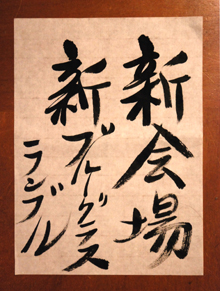 新会場
新ブルーグラス
ランブル